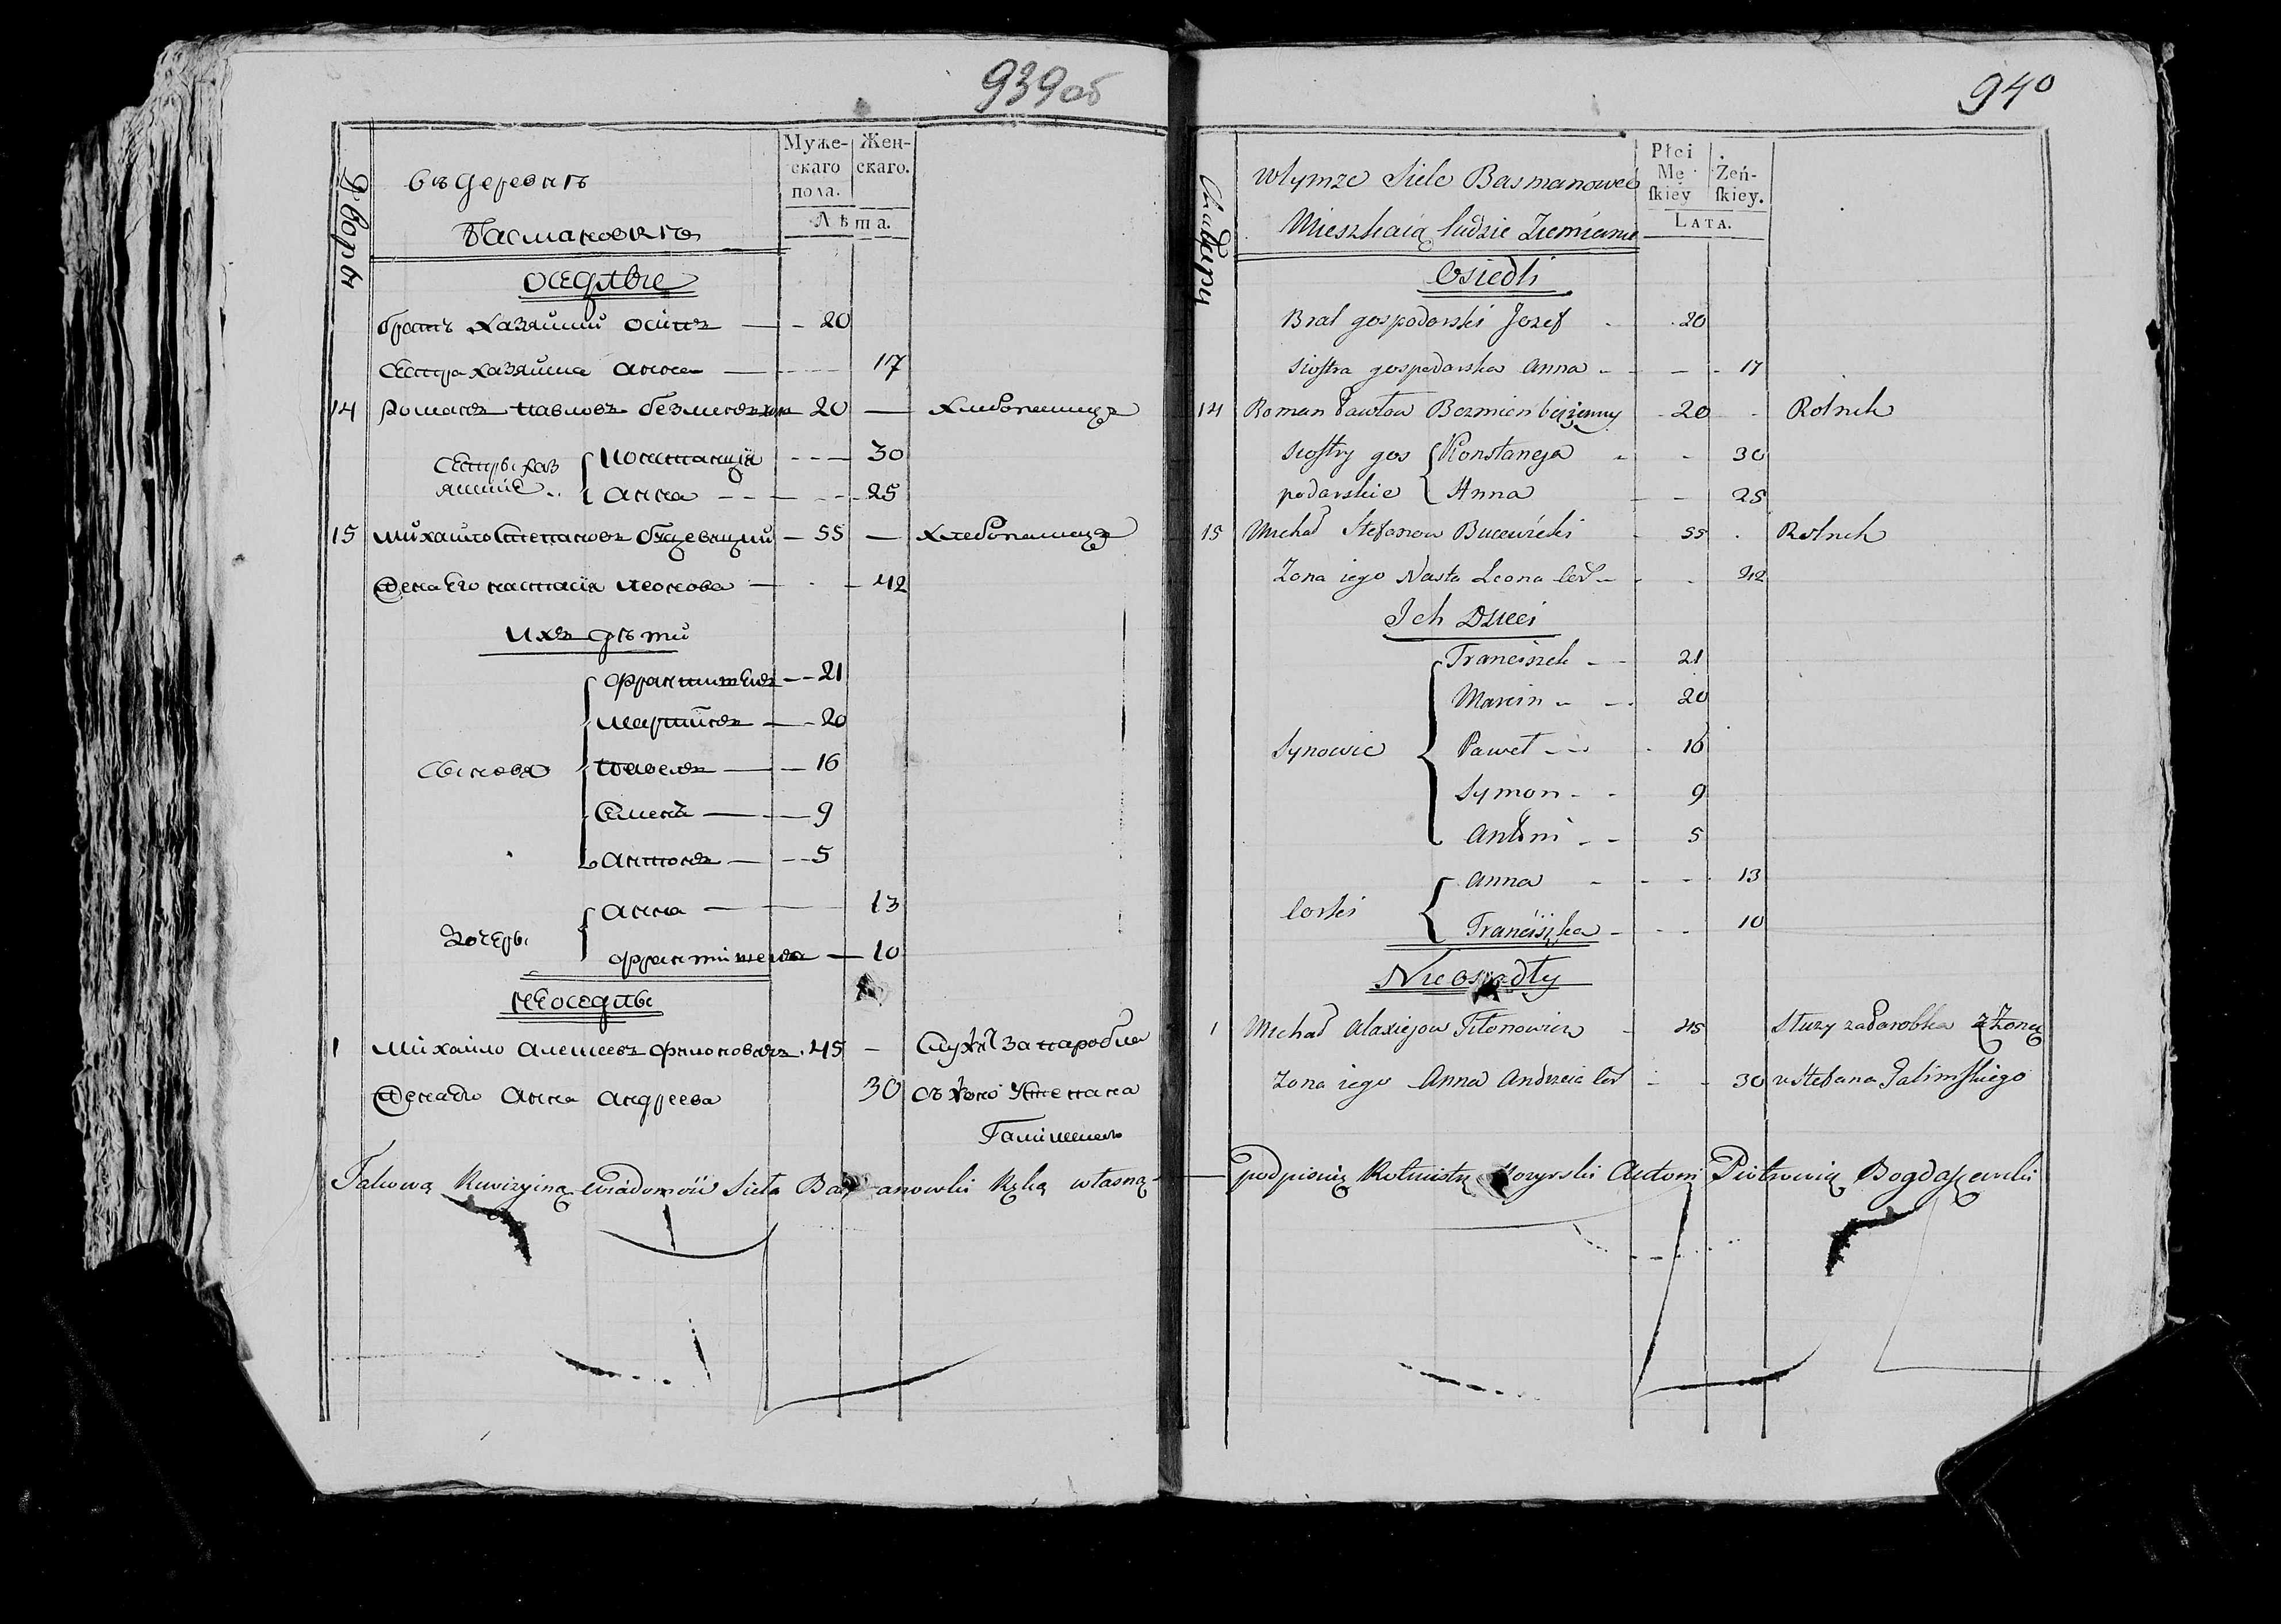 939об
Дворы
въ деревнѣ
Басмановкѣ
Муже-
скаго
пола.
Жен-
скаго.
Лѣта.
Оседлые
братъ хазяйский осипъ — 20
Сестра хазяйская анна — 17
14 Романъ павловъ безменъ — 20 — хлебопашецъ
Сестры хаз
яйские
констанция — 30
анна — 25
15 михайло Степановъ буцевицкий — 55 — хлебопашецъ
Жена Его настасия леонова — 42
ихъ дѣти
Сыновя
францишекъ — 21
мартинъ — 20
павелъ — 16
Семенъ — 9
антонъ — 5
дочеры
анна — 13
францишека — 10
неоседлы
1 михайло алексеевъ филоновичъ 45 — Служи за паробка
Жена Его анна андреева 30 съ женою Степана
Takową Rewizyiną wiadomość Sieła Basmanowki Ręką własną
940
Chałupy
wtymże Siele Basmanowce
Mieszkaią ludzie Ziemianie
Płci
Mę
skiéy
Żeń-
skiey.
LATA.
Osiedli
Brat gospodarski Jozef 20
Siostra gospodarska Anna 17
14 Roman Pawłow Bezmien bezżenny 20 Rolnik
Siostry gos
podarskie
Konstancya 30
Anna 25
15 Michał Stefanow Bucewicki 55 Rolnik
Zona iego Nasta Leona Cor 42
Ich Dzieci
Synowie
Franciszek 21
Marcin 20
Paweł 16
Symon 9
Antoni 5
Corki
Anna 13
Franciszka 10
Nieosiadły
1 Michał Alaxiejow Filonowicz 45 Służy za Parobka z Żoną
Zona iego Anna Andrzeia Cor 30 u Stefana Galimskiego
podpisuię Rotmistrz Antoni Piotrowicz Bogdaszewski